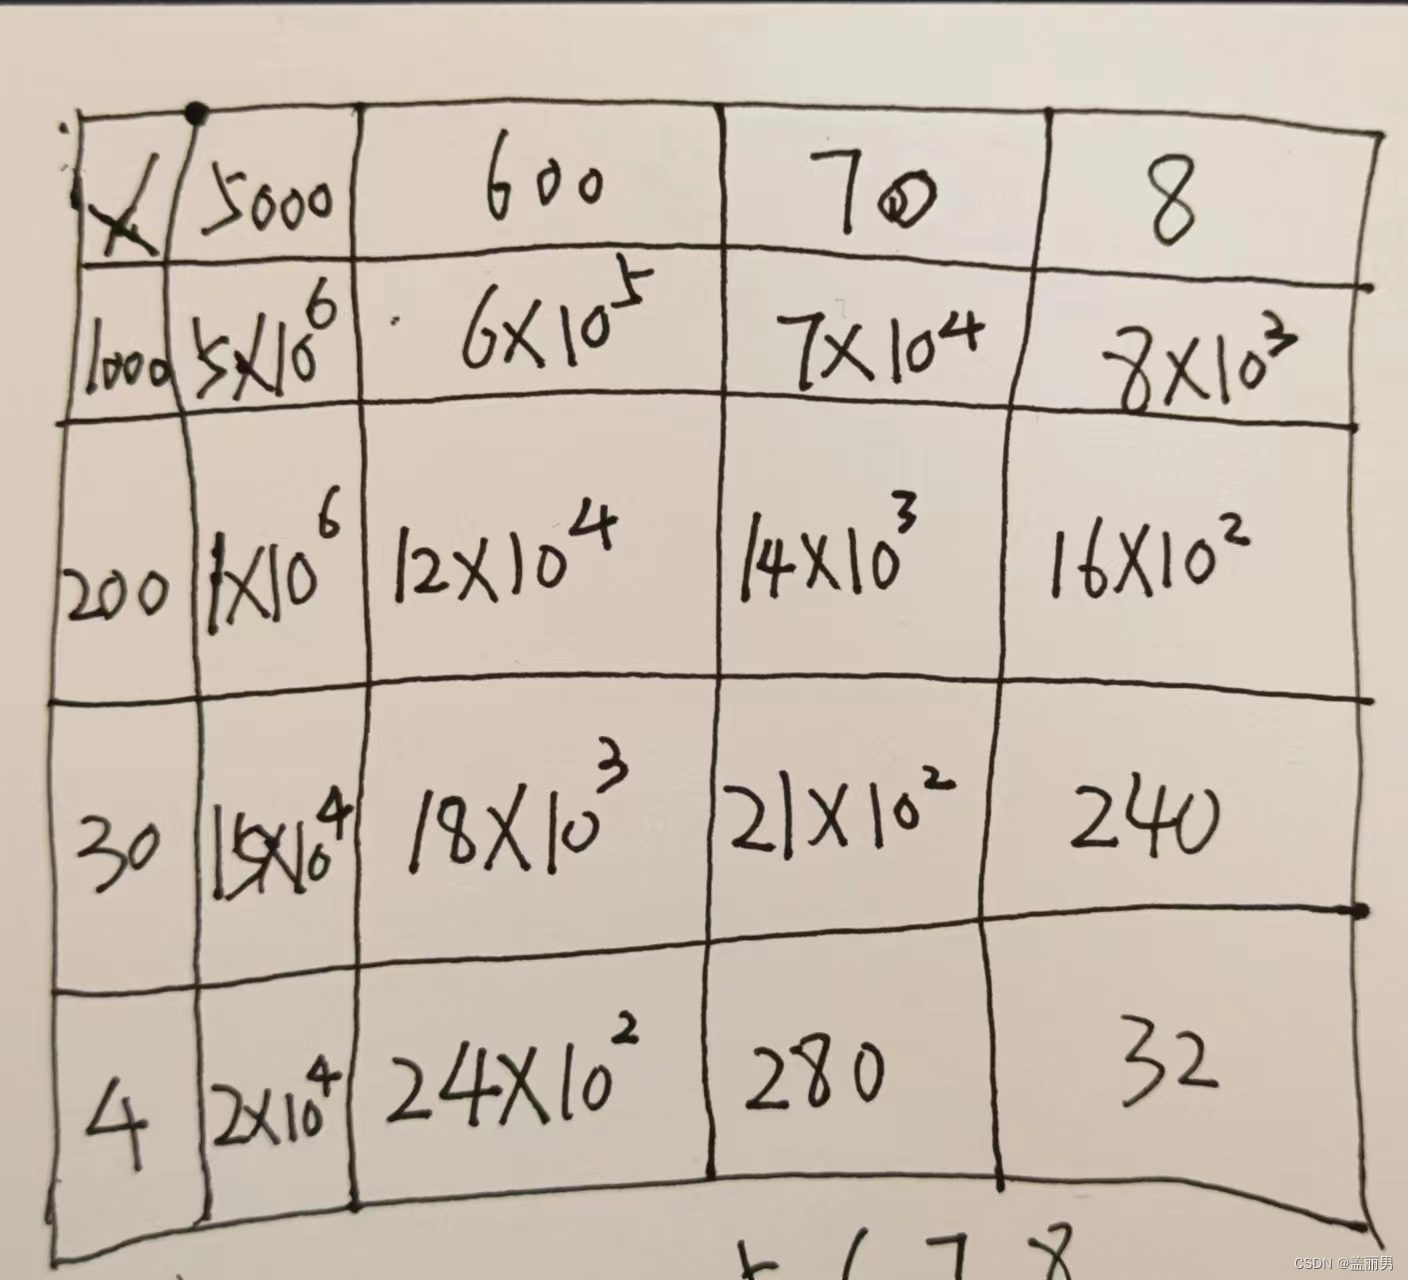 × 5000 600 70 8
1000 5×10⁶ 6×10⁵ 7×10⁴ 8×10³
200 1×10⁶ 12×10⁴ 14×10³ 16×10²
30 15×10⁴ 18×10³ 21×10² 240
4 2×10⁴ 24×10² 280 32
CSDN @盖丽男